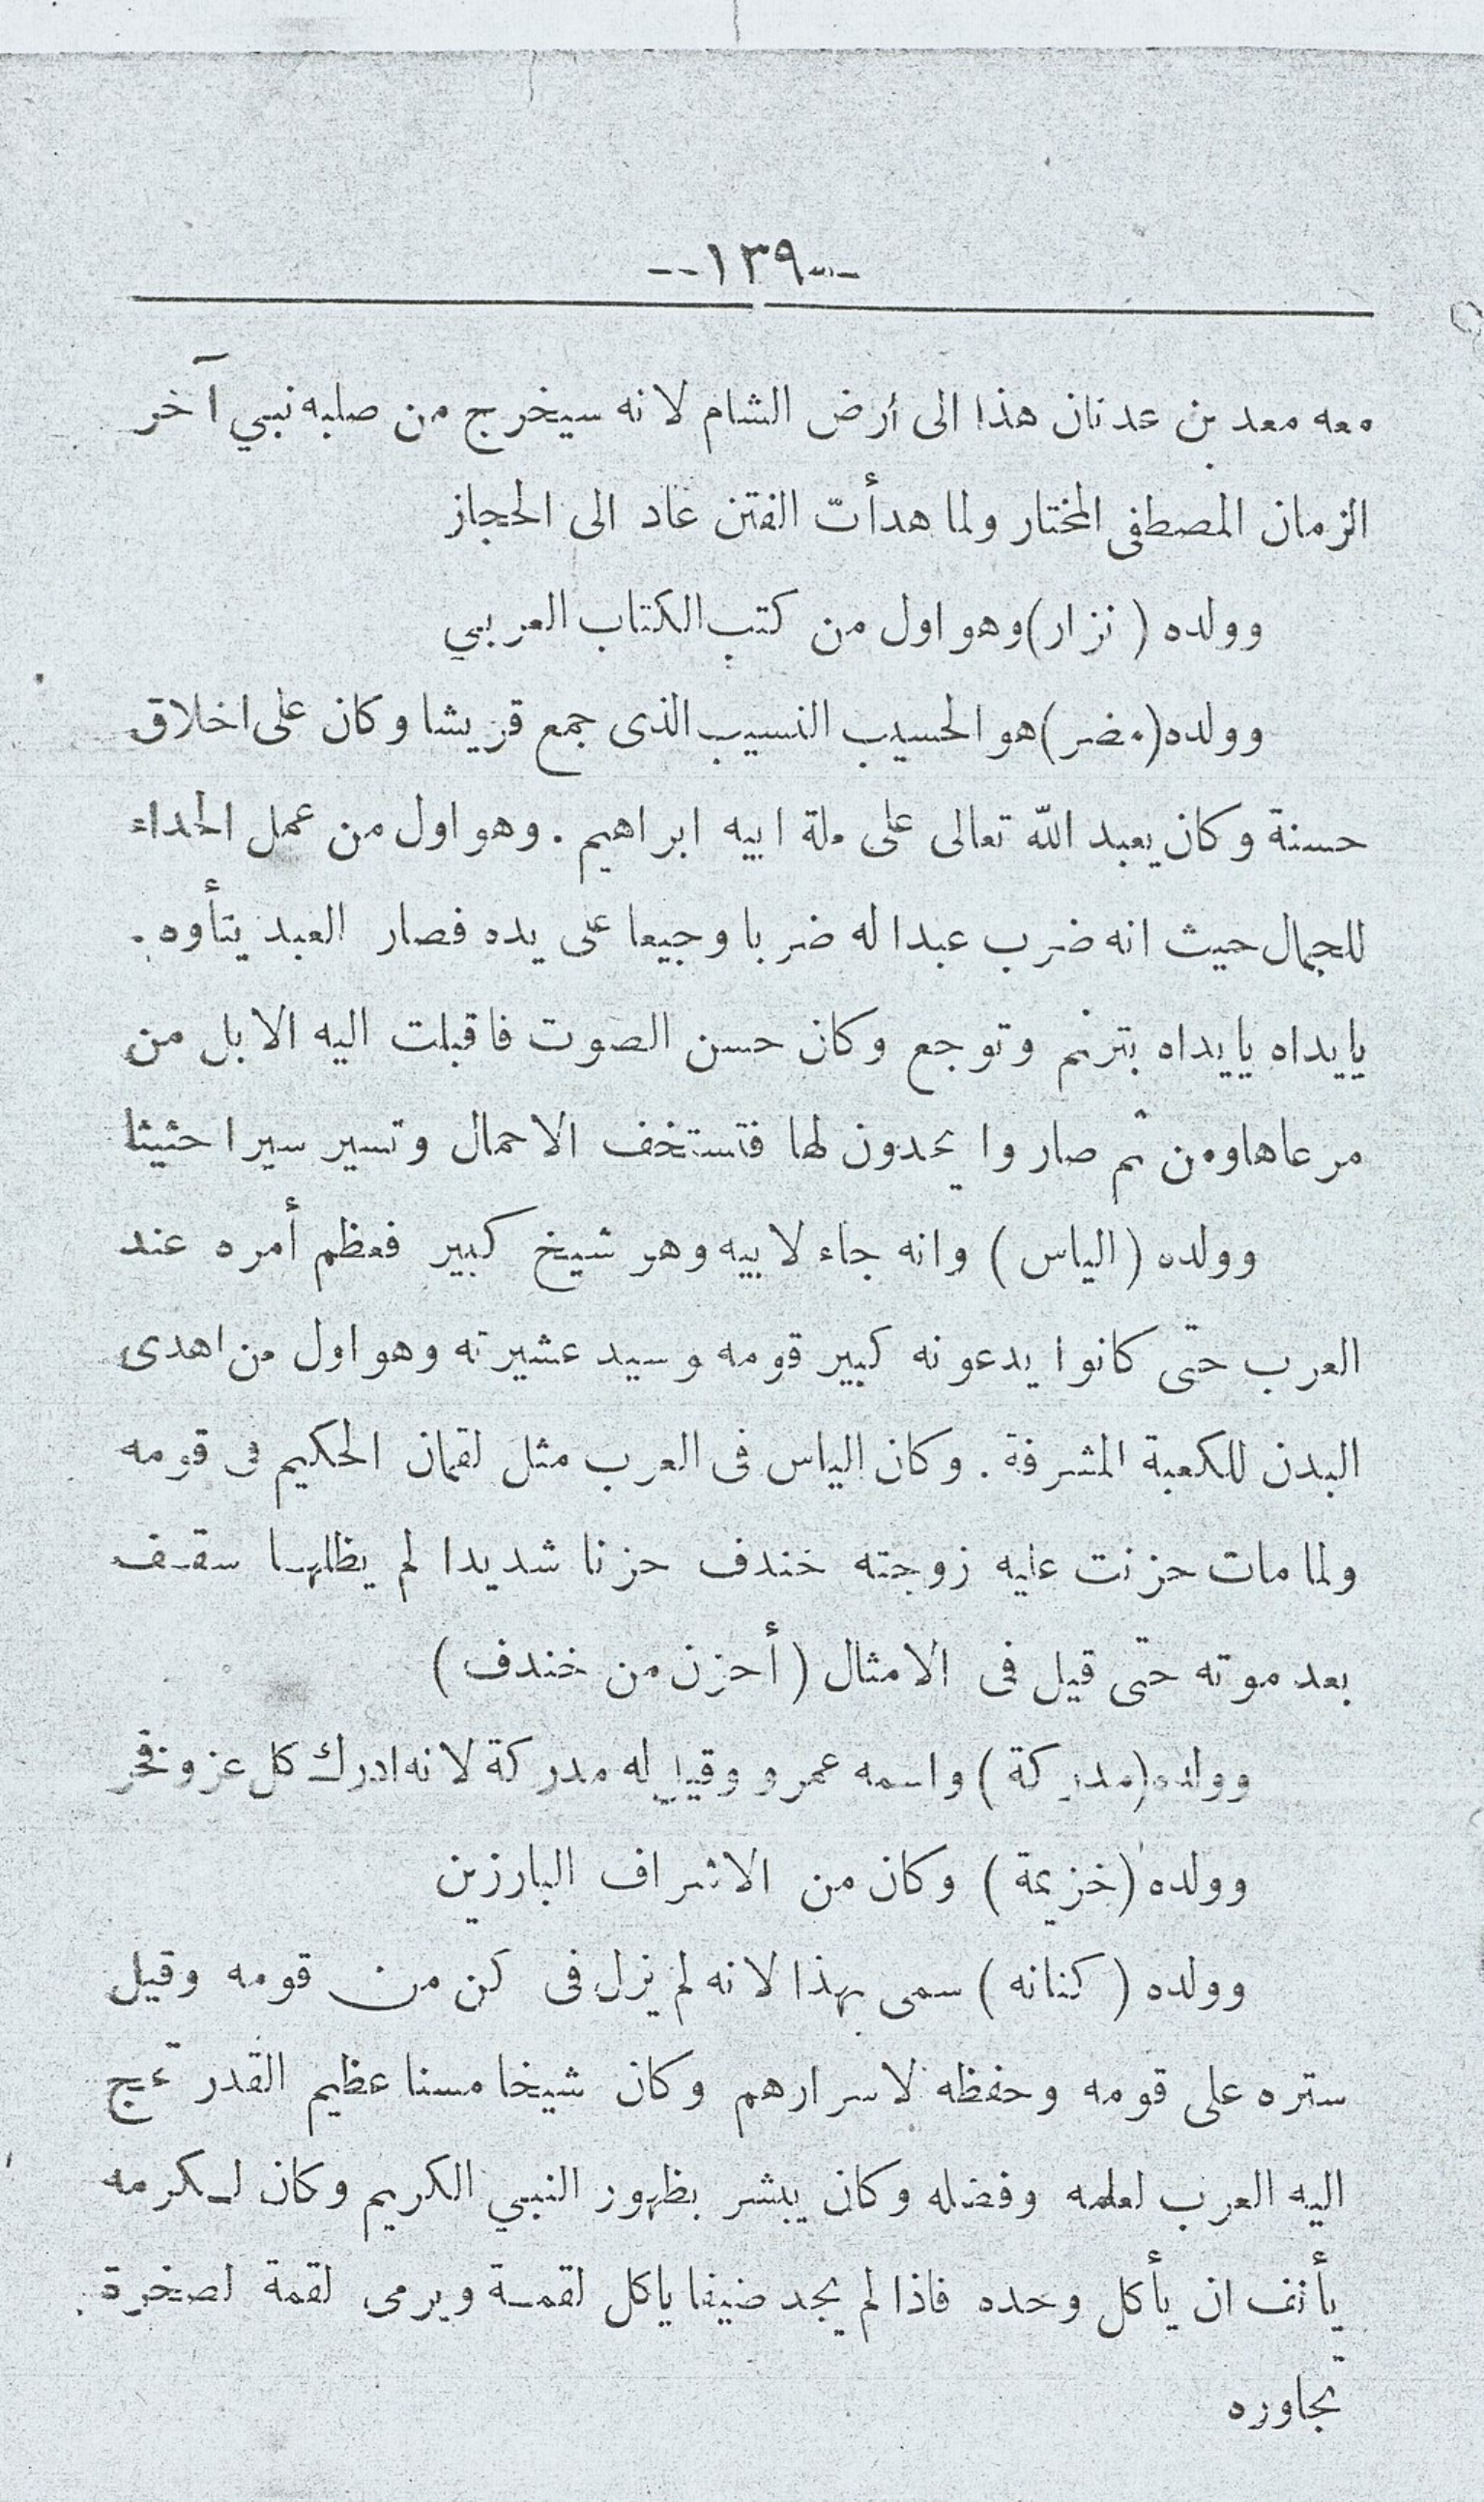 --١٣٩--
معه معد بن عدنان هذا الى أرض الشام لانه سيخرج من صلبه نبي آخر
الزمان المصطفى المختار ولما هدأت الفتن عاد الى الحجاز
وولده ( نزار)وهو اول من كتب الكتاب العربي
وولده(مضر)هو الحسيب النسيب الذى جمع قريشا وكان على اخلاق
حسنة وكان يعبد الله تعالى على ملة ابيه ابراهيم . وهو اول من عمل الحداء
للجمال حيث انه ضرب عبدا له ضربا وجيعا على يده فصار العبد يتأوه .
يايداه يايداه بترنم وتوجع وكان حسن الصوت فاقبلت اليه الابل من
مرعاها ومن ثم صاروا يحدون لها فتستخف الاحمال وتسير سيرا حثيثا
وولده (الياس) وانه جاء لابيه وهو شيخ كبير فعظم أمره عند
العرب حتى كانوا يدعونه كبير قومه وسيد عشيرته وهو اول من اهدى
البدن للكعبة المشرفة . وكان الياس فى العرب مثل لقمان الحكيم فى قومه
ولما مات حزنت عليه زوجته خندف حزنا شديدا لم يظلها سقف
بعد موته حتى قيل فى الامثال (أحزن من خندف )
وولده (مدركة ) واسمه عمرو وقيل له مدركة لانه ادرك كل عز وفخر
وولده (خزيمة ) وكان من الاشراف البارزين
وولده ( كنانه ) سمى بهذا لانه لم يزل فى كن من قومه وقيل
ستره على قومه وحفظه لاسرارهم وكان شيخا مسنا عظيم القدر تحج
اليه العرب لعلمه وفضله وكان يبشر بظهور النبي الكريم وكان لكرمه
يأنف ان يأكل وحده فاذا لم يجد ضيفا ياكل لقمة ويرمى لقمة لصخرة
بجاوره